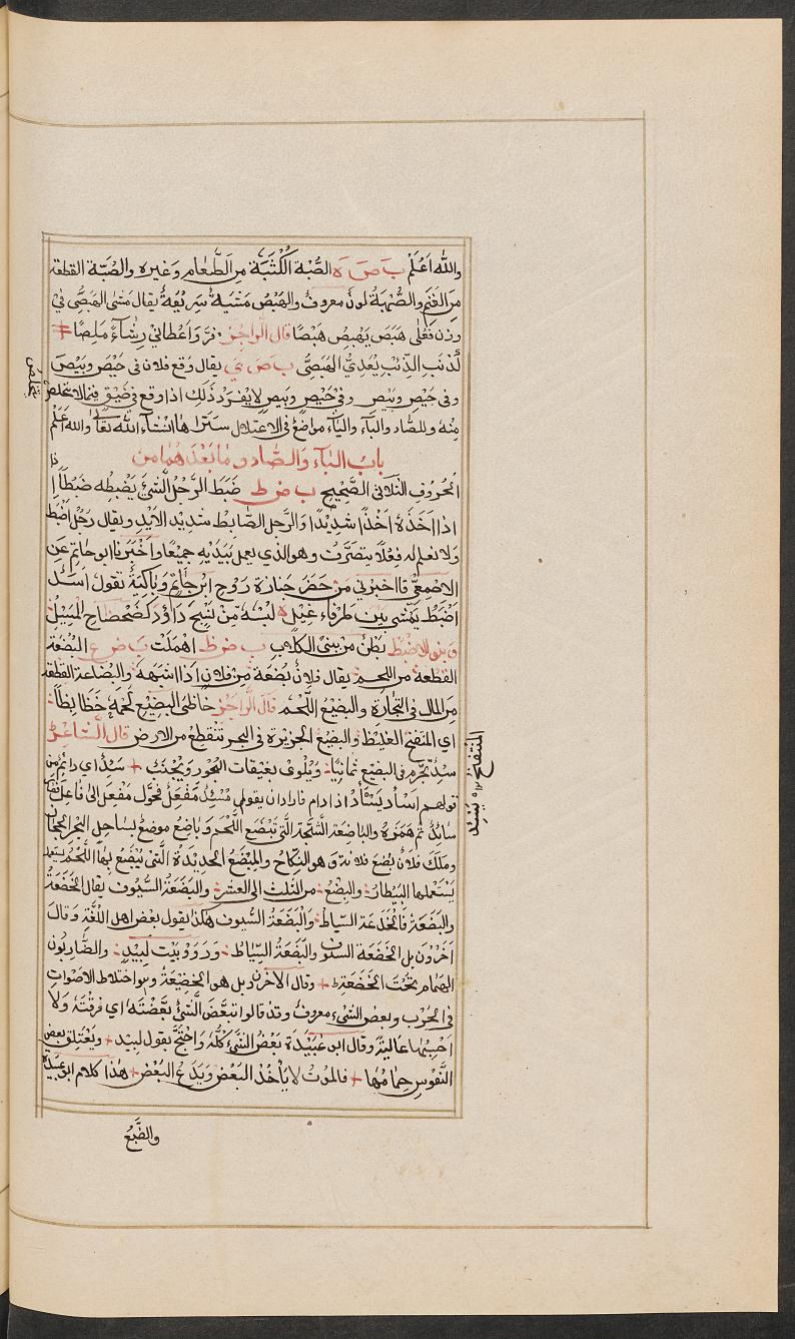 والله اَعْلَم ب ص ه الصُّبْة الكُثْبَة مِن الطَّعام وَغيره والصُبّة القطعة
مَن الغنَم والصُّهبَةُ لونٌ معروفٌ والهَبَصُ مَشْيَةٌ سَرِيْعَةٌ يقال مَشَى الهَبَصَى فِي
وزن فَعَلى هَبَصَ يَهْبِصُ هَبْصًا قال الراجز فرَّ وَاَعْطاني رِشَاءً مَلِصًا
كَذَنَب الذِئْب يُعَدِّيْ الهَبَصَى ب ص ى يقال وَقع فلان فى حَيْصَ وبَيْصَ
وفى حِيْصَ وبِيْصَ وفي حَيْصٍ وبَيصٍ لا يُفرَدُ ذَلِكَ اذا وقع فى ضِيْق فما لا تخلص
مِنْهُ وللصّاد والبَآء واليَآءِ مواضعُ فى الاعتلال ستَراها اِنْشاَء الله تعالى والله اَعْلَم
بابُ البَآءِ وَالضّاد وما بَعْدَهُما من
الْحُروُفِ الثلاثى الصَّحِيْحِ ب ض ط ضَبَط الرَّجُل الشَئَ يَضْبِطُه ضَبْطًا
اذا اَخَذَهُ اَخْذًا شَدِيْدًا وَالرَّجل الضّابِطُ شَديْد الاَيْدِ ويقال رَجُل اَضْبَط
وَلا نعلم له فِعْلًا يتصَرّف وهو الذي يعمل بيَدَيْهِ جَميْعًا واَخْبَرنا ابو حاتِمٍ عَن
الاصْمعىّ قا اخبرنى مَن حَضَر جَنازة رَوْحِ ابْن حَاتِمٍ وَباكِيَةٌ تقول اَسَدٌ
اَضْبَطُ يَمْشى بَين طَرفاءَ غِيْلٍ لبْسُهُ مِنْ نَسْجِ دَاوُد كَضَحضاحِ المَسِيْلِ
وبنو الاضبط بطْنٌ من بنى الكلاب ب ض ظ اهمَلَتْ ب ض ع البَضْعَة
القطعة من اللحم يقال فلان بُضْعَة مِن فلانٍ اذا اشبَهَهُ والبضاعة القطعة
مِن المال فى التجارة والبضيْعُ اللَّحْم قال الرّاجز خاظى البضيْعِ لَحمُهُ خَظا بَظا
اي المنفخ الغليْظ والبضيع الجزيرة فى البحر تنقطع من الارض قال الشاعر
سئِدٌ تجرّم فى البضيع ثمانيًا وَيُلْوى بعَيْقات البُحُور وَيُجْنَبُ سئِدٌ اي دائِمٌ من
قولهم اَسْاَد يَسْئَدُ اذا دام فارادان يقول مُسْئِدٌ مُفْعِلٌ فحَوّل مُفْعِل الى فاعل فقال
سائِدٌ ثم هَمَزهُ والباضعة الشَجّة التَى تَبْضَع اللَّحم وَباضِع موضعٌ بسَاحلِ البحر الحجاز
وملَك فلانٌ بُضْع فلانة وهو النِكاح والمِبْضَعُ الحديْدَة الَّتى يُبْضَعُ بهَا اللَّحْم
يَسْتَعملها البَيْطار والبِضْعُ من الثلث الى العشر والبَضْعَةُ السُّيُوف يقال الخَضْعَةُ
والبَضَعَةُ فالخضَعَة السّياط وَالبَضَعَة السُّيوف هكذا يقول بعضُ اهل اللُّغَة وَقال
اَخرُون بل الخَضَعَة السيوف والبَضَعَة السِّياط وَرَوَوْ بَيْت لَبيْدٍ والضّارِبُون
الهَام تحْتَ الخَضَعَة وقال الاخرون بل هو الخضِيْعَةُ وهو اختلاط الاَصْواتِ
فى الحَرْب وبعض الشئ معروف وقد قالوا تبعّضَ الشَئ بَعَّضْتُه اي فرقتُهُ ولا
احسِبُها عاليةً وقال ابو عُبَيْدَة بَعْضُ الشئ كُلّه وَاحْتَجَّ بقول لبيْد وَيَعْتَلِق بعضَ
النّفوْسِ حِمامُها فالمَوْتُ لا يأخُذُ البَعْض وَيَدَعُ البَعْض هٰذا كلام ابو عبيدة
والضَّبُعُ
المنتفخ